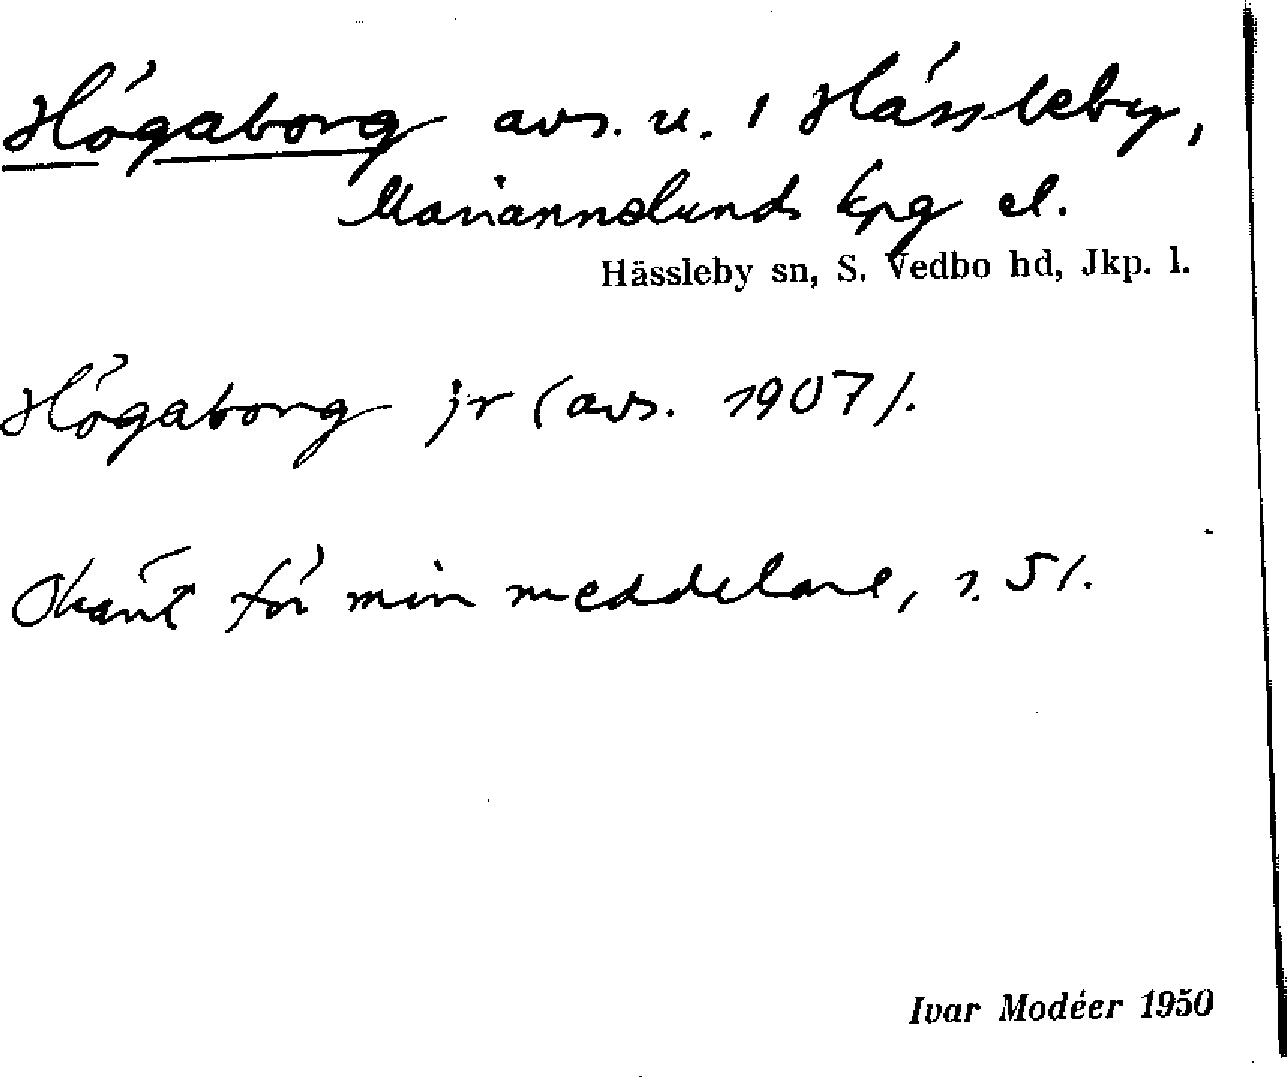 Högaborg avs. u. i Hässleby,
Mariannelunds kpg el.
Hässleby sn, S. Vedbo hd, Jkp. l.
Högaborg jr (avs. 1907).
Okänt för min meddelare, s. 51.
Ivar Modéer 1950